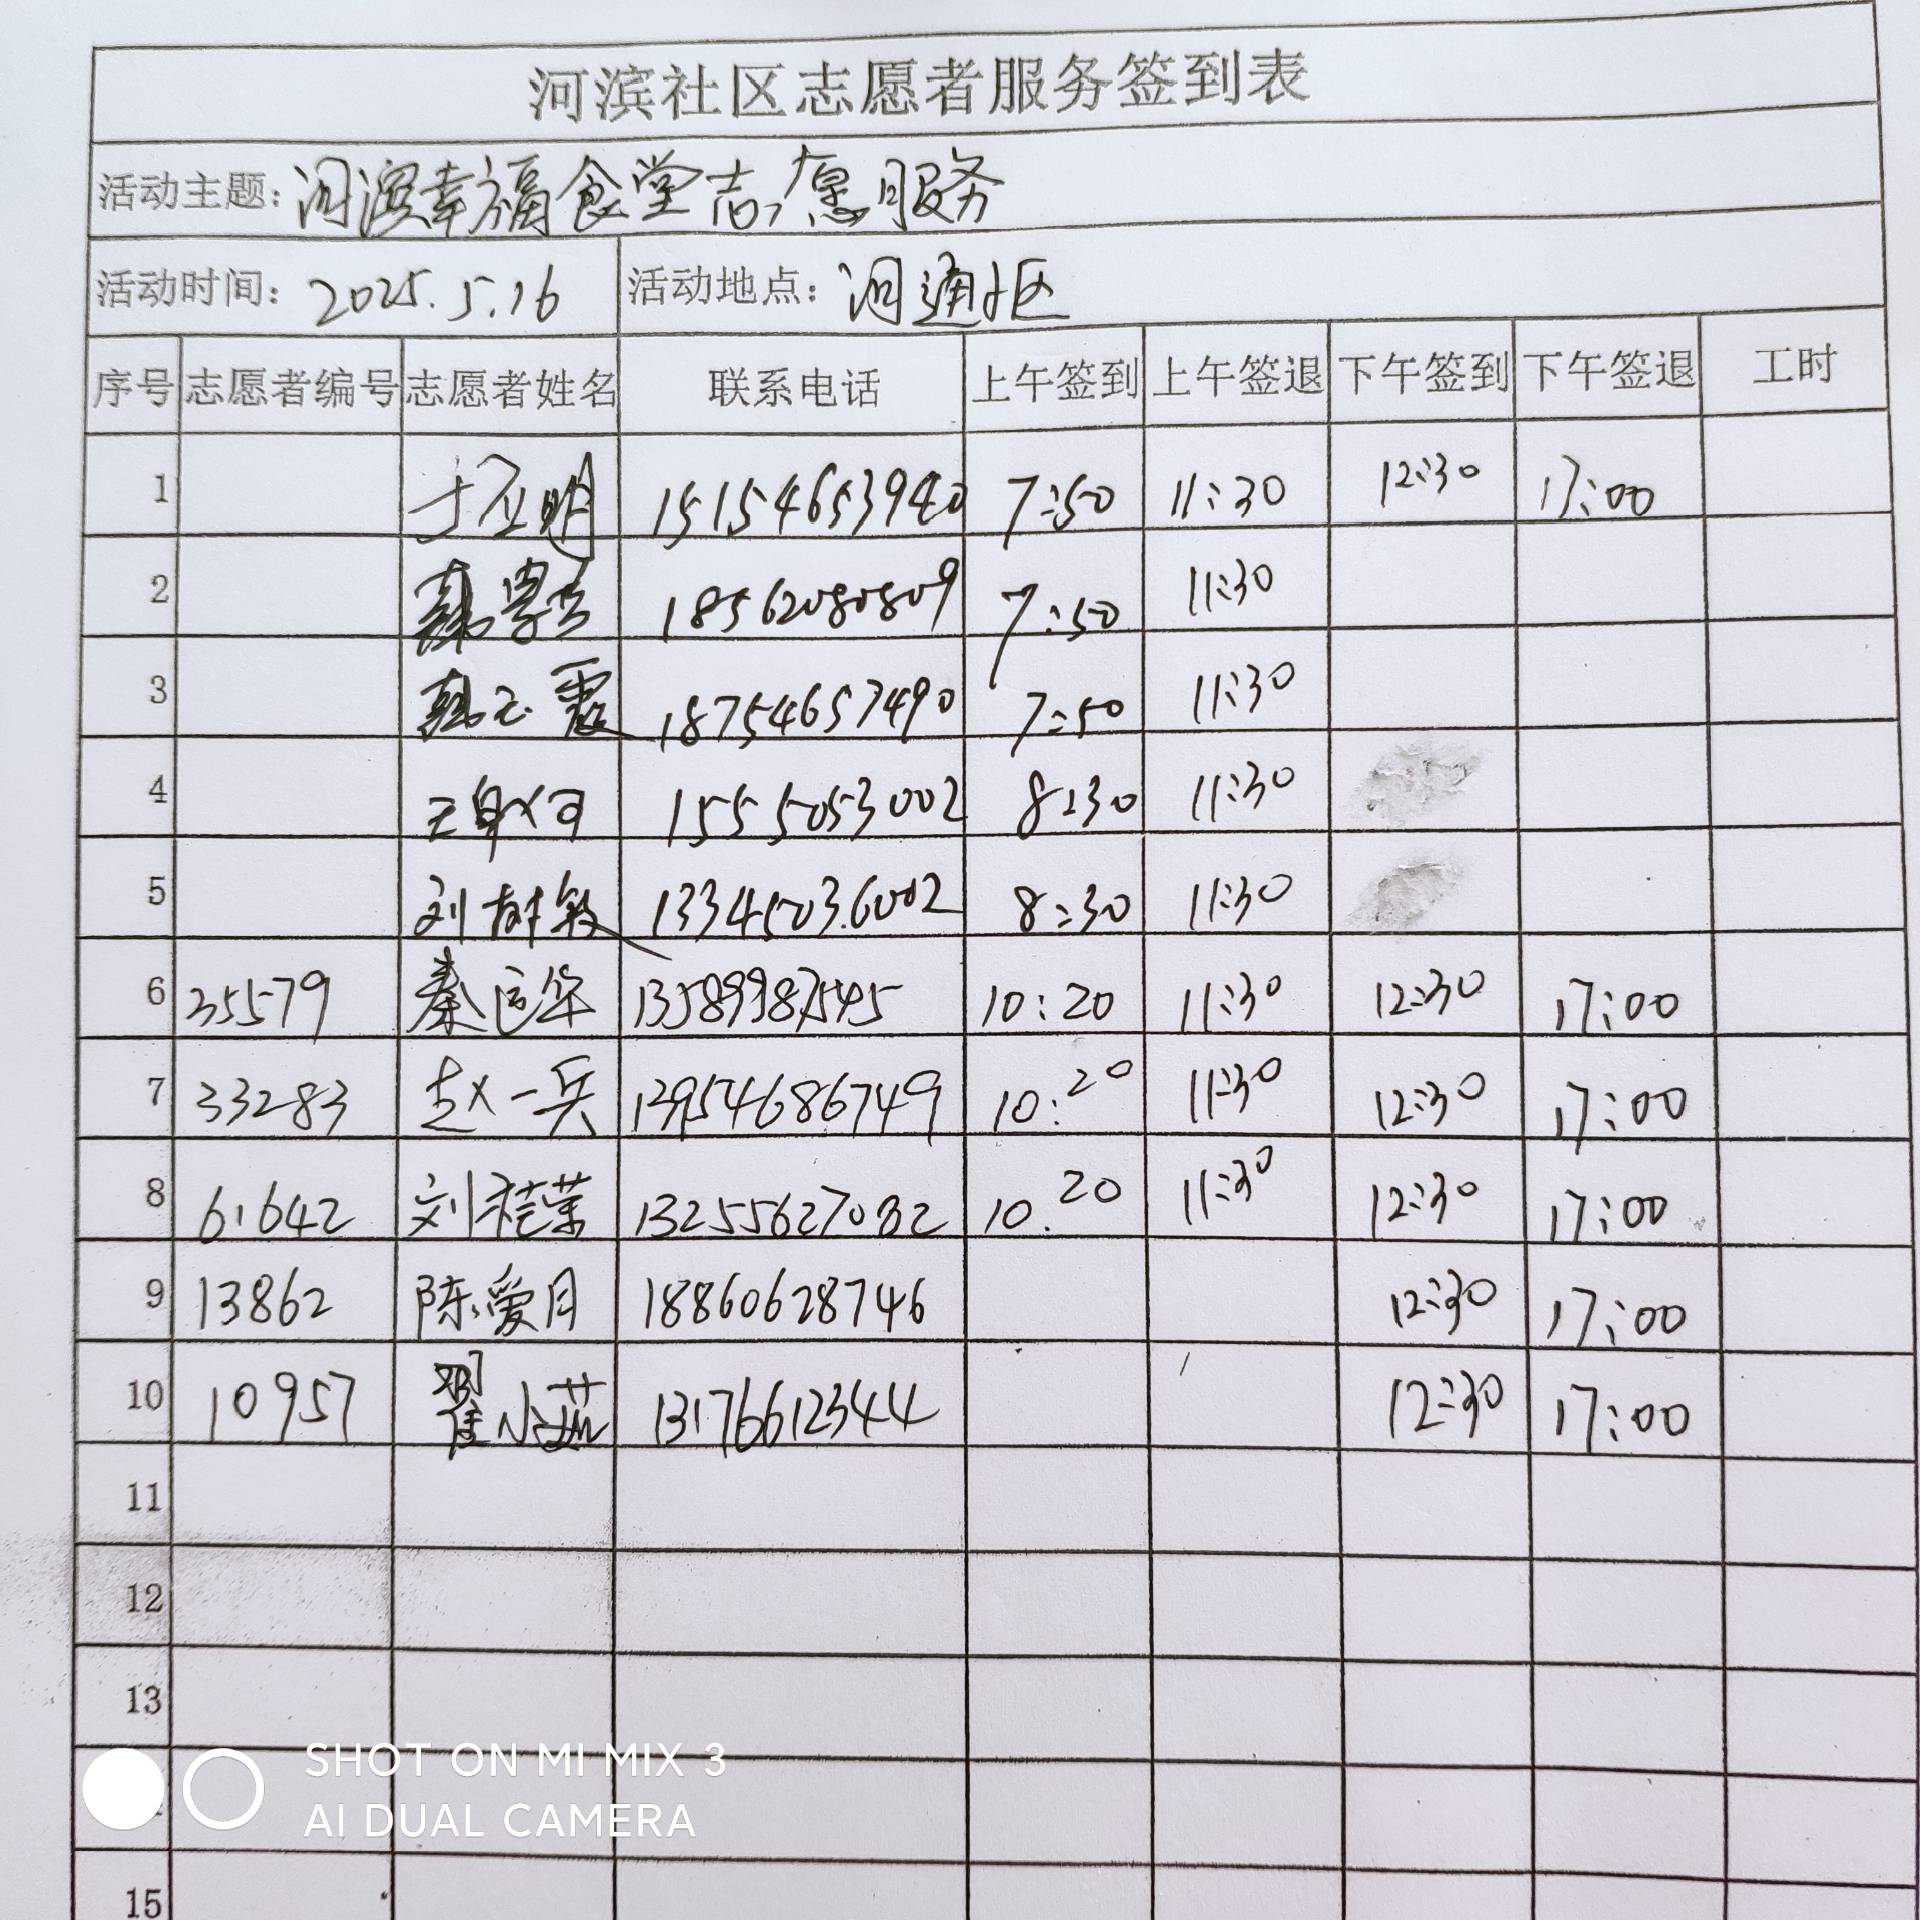 河滨社区志愿者服务签到表
活动主题: 河滨幸福食堂志愿服务
活动时间: 2025.5.16 活动地点: 河通社区
序号 志愿者编号 志愿者姓名 联系电话 上午签到 上午签退 下午签到 下午签退 工时
1 15154653940 7:50 11:30 12:30 17:00
2 18562080809 7:50 11:30
3 18754657490 7:50 11:30
4 1555053002 8:30 11:30
5 刘树敏 13345036002 8:30 11:30
6 35579 秦运华 13589987545 10:20 11:30 12:30 17:00
7 33283 赵一兵 13954686749 10:20 11:30 12:30 17:00
8 61642 刘桂荣 13255627082 10.20 11:30 12:30 17:00
9 13862 陈爱月 18860628746 12:30 17:00
10 10957 翟小茹 13176612344 12:30 17:00
11
12
13
15
SHOT ON MI MIX 3
AI DUAL CAMERA